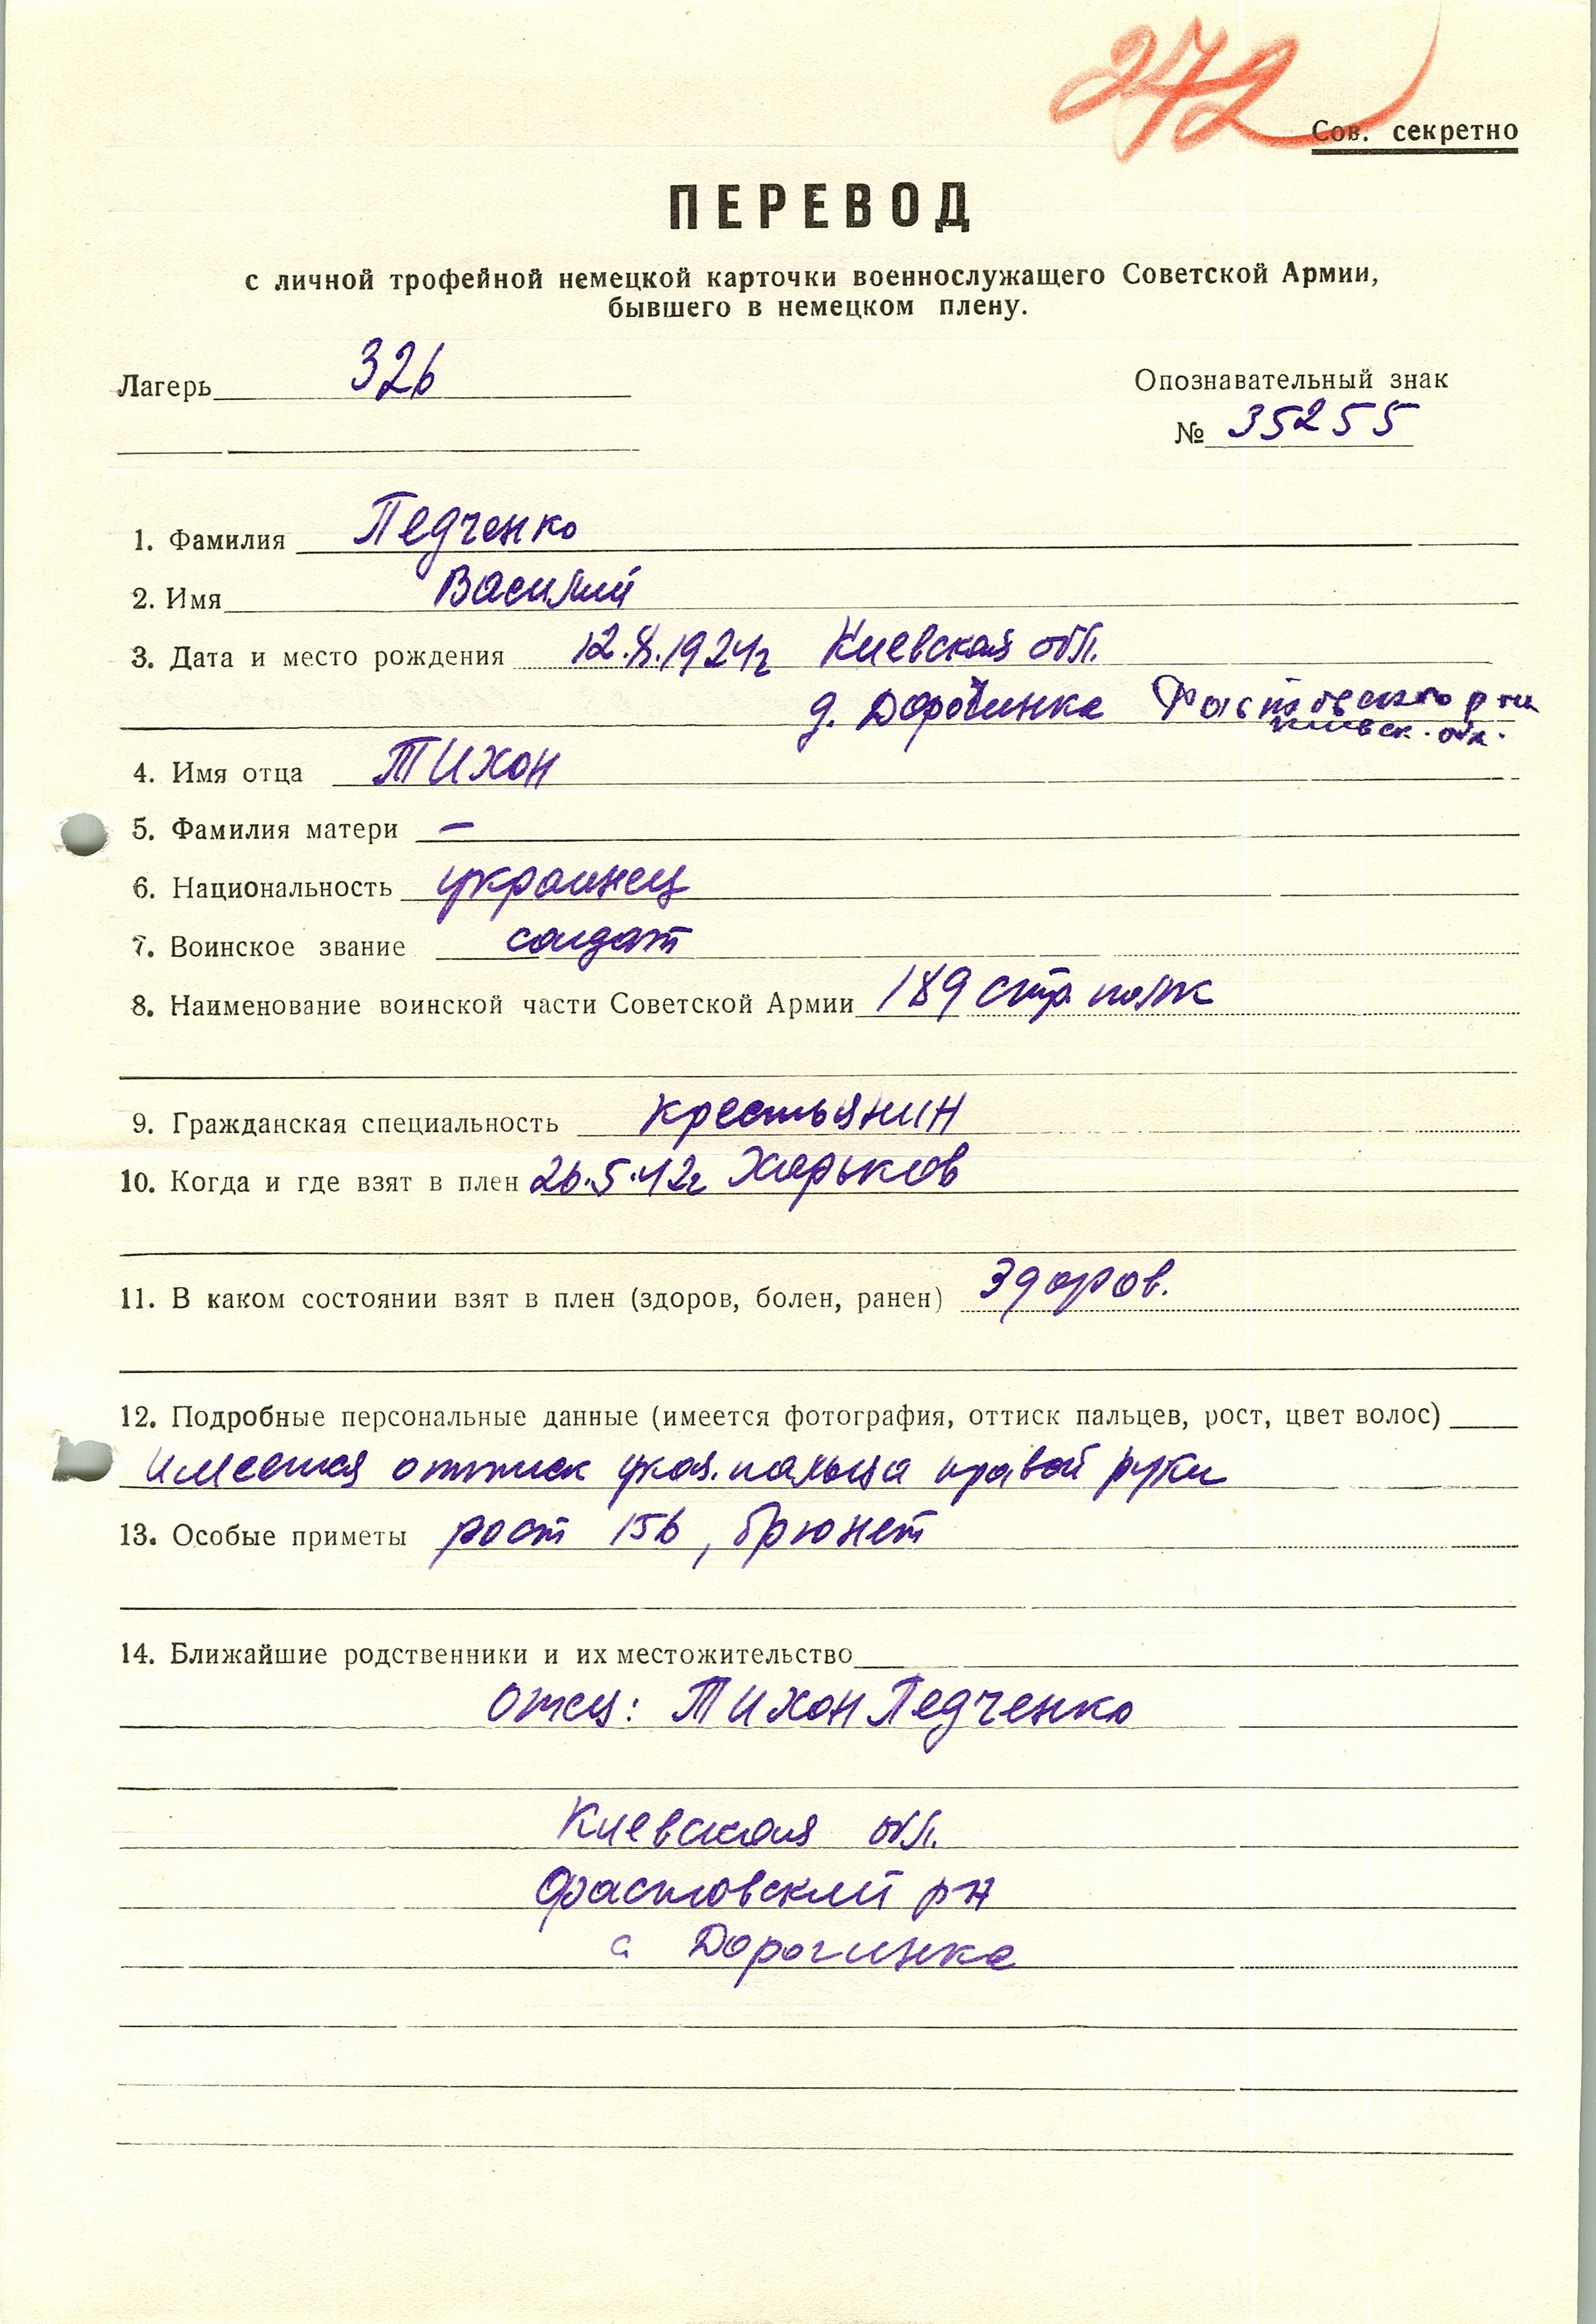 272
Сов. секретно
ПЕРЕВОД
с личной трофейной немецкой карточки военнослужащего Советской Армии,
бывшего в немецком плену.
Лагерь 326
Опознавательный знак
№ 35255
1. Фамилия Педченко
2. Имя Василий
3. Дата и место рождения 12.X.1924г Киевская обл.
д. Дорогинка Фастовского р-на
Киевск. обл.
4. Имя отца Тихон
5. Фамилия матери –
6. Национальность украинец
7. Воинское звание солдат
8. Наименование воинской части Советской Армии 189 стр. полк
9. Гражданская специальность крестьянин
10. Когда и где взят в плен 26.5.42г Харьков
11. В каком состоянии взят в плен (здоров, болен, ранен) Здоров.
12. Подробные персональные данные (имеется фотография, оттиск пальцев, рост, цвет волос)
имеется оттиск указ. пальца правой руки
13. Особые приметы рост 156, брюнет
14. Ближайшие родственники и их местожительство
Отец: Тихон Педченко
Киевская обл.
Фастовский р-н
с Дорогинка